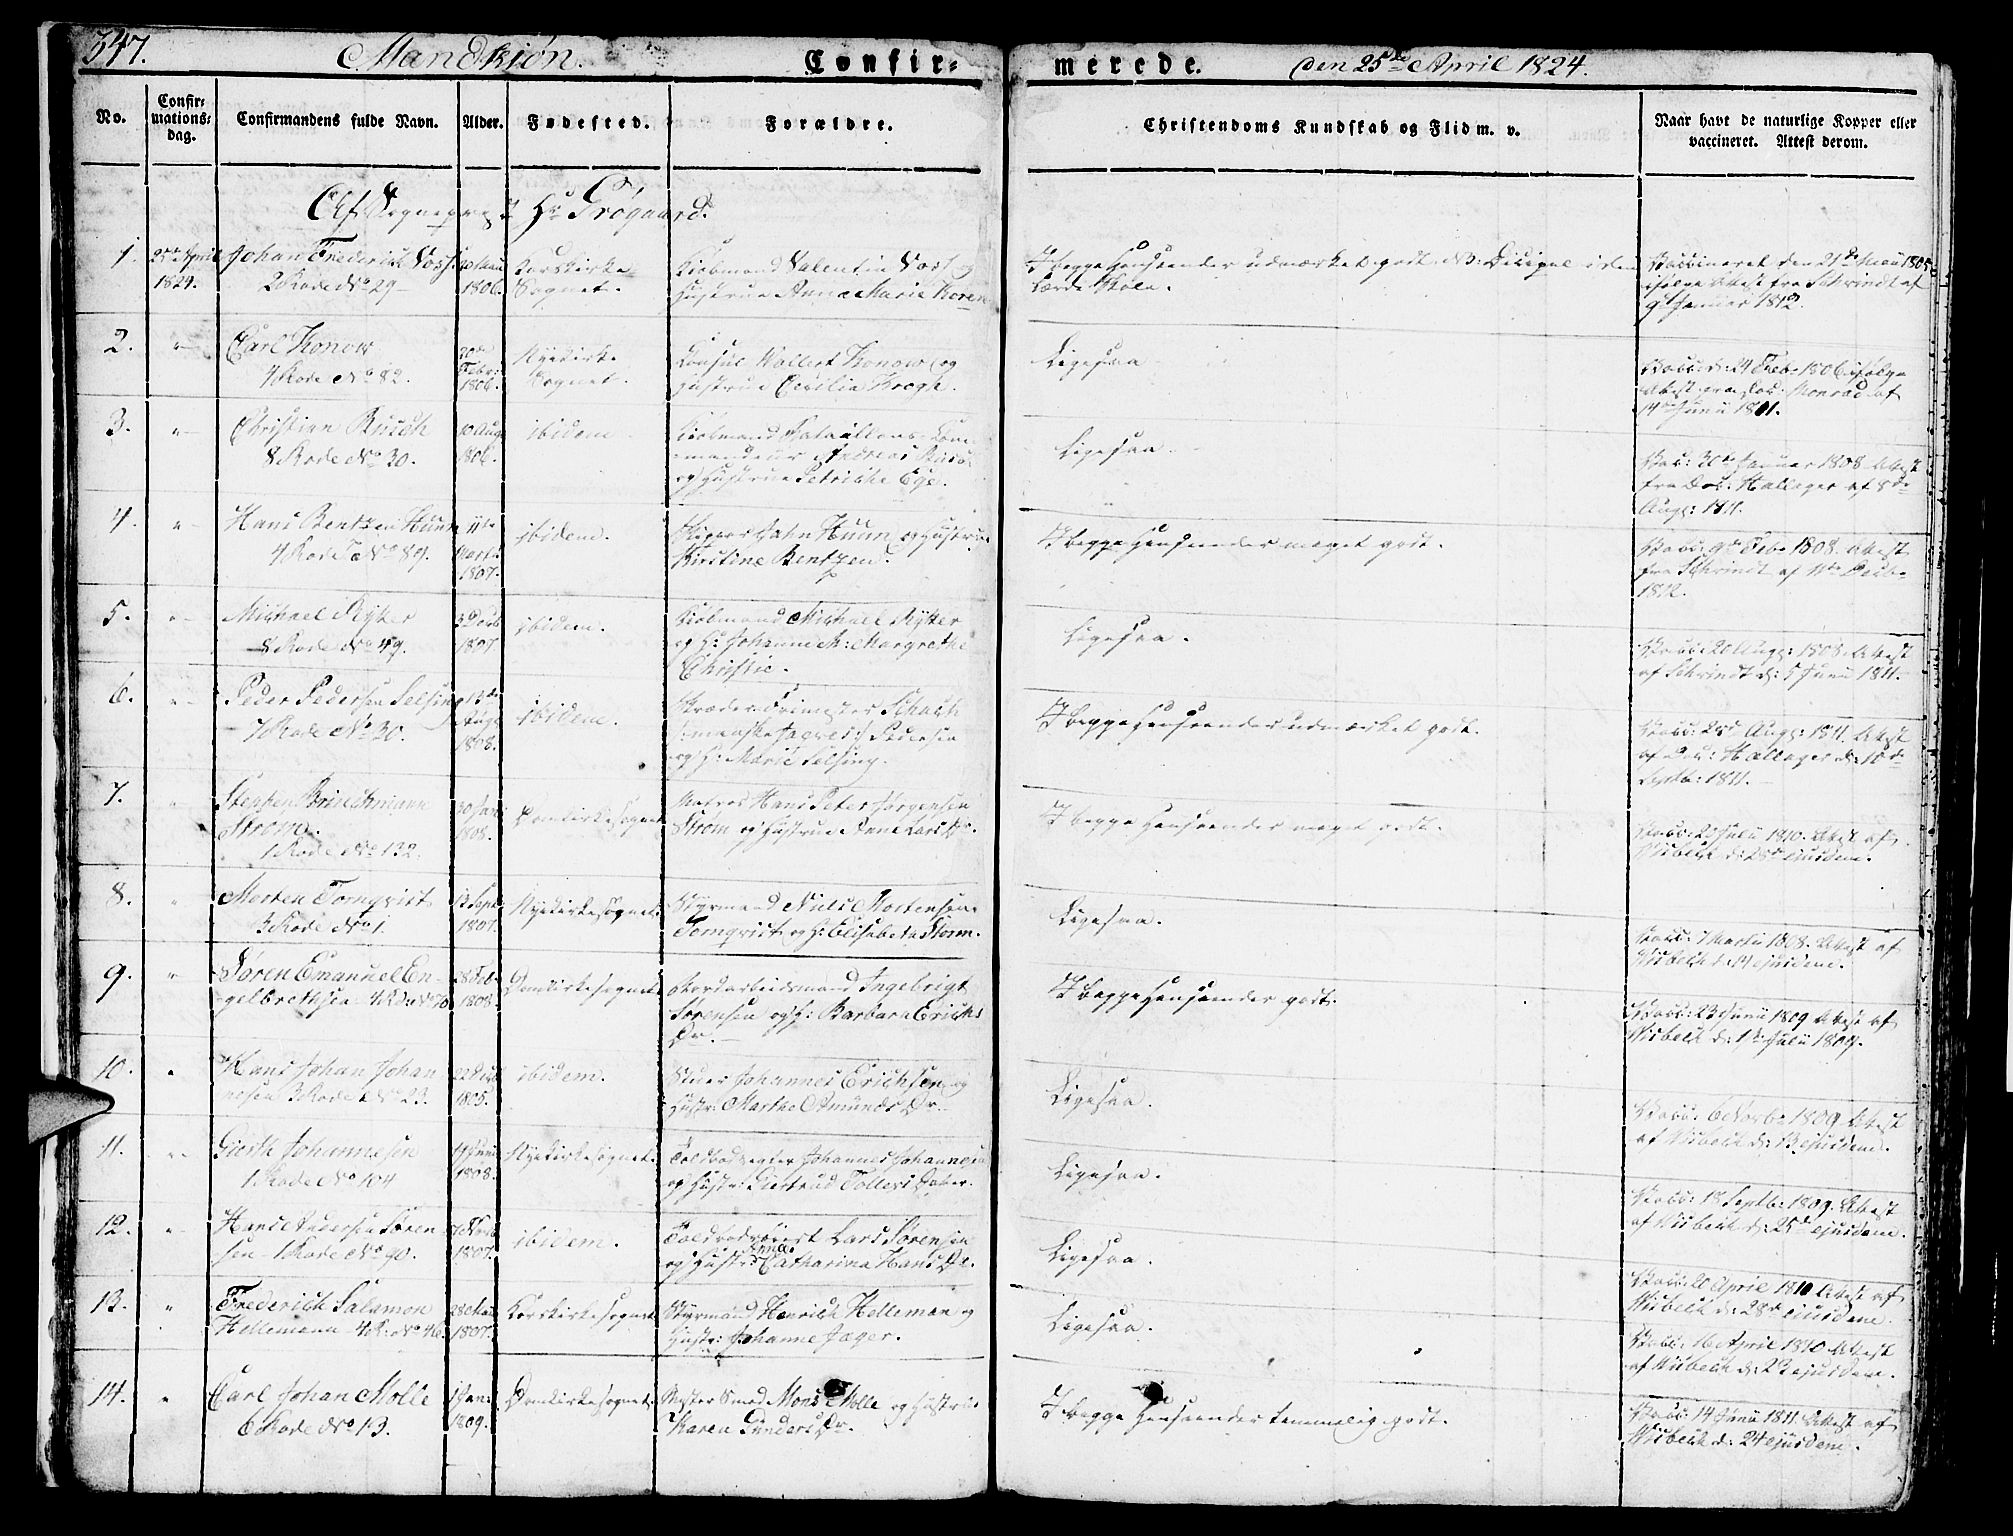 347. Mandkiøn. Confir-
merede. den 25de April 1824.
No.
Confir-
mations-
dag.
Confirmandens fulde Navn.
Alder.
Fødested.
Forældre.
Christendoms Kundskab og Flid m. v.
Naar havt de naturlige Kopper eller
vaccineret. Attest derom.
Af Sogneprest Hr Grøgaard.
1. 25de April
1824.
Johan Frederich Voss
2 Rode No 29
1806.
Korskirke
Sognet.
Kiøbmand Valentin Voss og
Hustrue Anna Maria Koren
I begge Henseender udmærket godt. NB: Dicipel i den
Lærde Skole.
Vaccineret den
ifølge Attest fra Schrindt af
9de Januar 1812.
2.
Carl Konow
4 Rode No 82.
20de
Febr:
1806.
Nyekirke
Sognet.
Consul Wollert Konow og
Hustrue Cecilia Krogh.
Ligesaa
Vacc: d: 24 Feb: 1806 ifølge
Attest fra Doc: Monrad af
14de Junii 1811.
3.
Christian Rusch
8 Rode No 30.
10 Aug
1806.
ibidem
Kiøbmand Batallions-Com-
mandeur Andreas
og Hustrue Petriche Ege.
Ligesaa.
Vac: 30te Januar 1808 Attest
fra Doc: Hallager af 8de
Aug: 1811.
4.
Hans Bentzen Huun
4 Rode No 89.
11te
Martii
1807.
ibidem.
Skipper John Huun og Hustrue
Kirstine Bentzen.
I begge Henseender meget godt.
Vacc: 9de Feb: 1808. Attest
fra Schrindt af 11te
1812.
5.
Michael Ryker
8 Rode No 49.
1807.
ibidem.
Kiøbmand Michael Ryker
og H: Johanne M: Margrethe
Christie.
Ligesaa.
Vacc: 20 Aug: 1808. Attest
af Schrindt d: 5 Junii 1811.
6.
Peder Pedersen Selsing
7 Rode No 30.
13de
Aug:
1808.
ibidem.
Pedersen
og H: Marie Selsing.
I begge Henseender udmærket godt.
Vacc: 28de Aug: 1811. Attest
af Doc: Hallager d: 10de
Septb: 1811.
7.
Stephen Brinchmann
Strøm.
1 Rode No 132.
30 Jan:
1808.
Domkirkesognet
Matros Hans Peter Jørgensen
Strøm og Hustrue Anne Lars Dr.
I begge Henseender meget godt.
Vacc: 23 Julii 1810. Attest af
Wisbech d: 28de ejusdem.
8.
Morten Tornqvist
3 Rode No 1.
13 Sept:
1807.
Nyekirkesognet.
Styrmand Niels Mortensen
Tornqvist og H: Elisabeth Storm.
Ligesaa.
Vacc: 7 Martii 1808. Attest af
Wisbech d: 14 ejusdem.
9.
Søren Emanuel En-
gelbrethsen 4 R: No 70
28 Feb:
1808.
Domkirkesognet
Ingebrigt
Sørensen og H: Barbara Erichs
Dr.
I begge Henseender godt.
Vacc: 23 Junii 1809 Attest af
Wisbech d: 1ste Julii 1809.
10.
Hans Johan Johan
nesen 3 Rode No 23.
1805.
ibidem.
Stuer Johannes Erichsen og
Hustr: Marthe Asmunds Dr.
Ligesaa.
Vacc: 6 Novbr 1809 Attest
af Wisbech d: 13 ejusdem.
11.
Gierth Johannesen
1 Rode No 104
19 Junii
1808.
Nyekirkesognet.
Toldbod Johannes Johannesen
og Hustr: Giertrud Tollevs Dater.
Ligesaa.
Vacc: 18 Septb: 1809. Attest
af Wisbech d: 25de ejusdem.
12.
Hans Andersen Søren
sen 1 Rode No 90.
1807.
ibidem.
Lars Sørensen
og Hustr: Anna Catharina Hans Dr.
Ligesaa.
Vacc: 20 April 1810 Attest af
Wisbech d: 28de ejusdem.
13.
Frederich Salamon
Hellemann 4 R: No 46.
28 Mai
1807.
Korskirkesognet
Styrmand Henrich Helleman og
Hustr: Johanne Jæger.
Ligesaa.
Vacc: 16 April 1810 Attest
af Wisbech d: 23 ejusdem.
14.
Carl Johan Molle
6 Rode No 13.
1 Jan:
1809.
Domkirkesognet.
Mester Smed Mons Molle og Hustrue
Karen Dr.
I begge Henseender temmelig godt.
Vacc: 14 Junii 1811. Attest af
Wisbech d: 24 ejusdem.